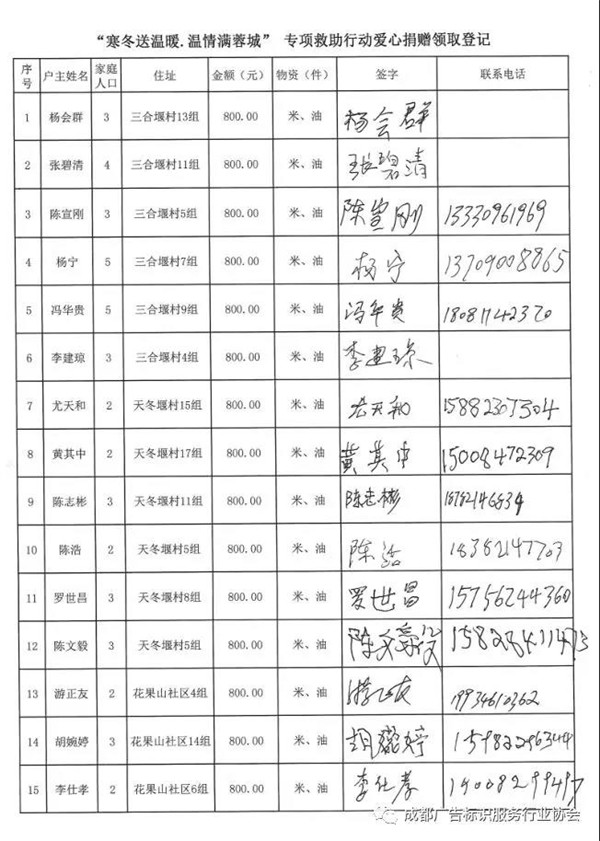 “寒冬送温暖.温情满蓉城” 专项救助行动爱心捐赠领取登记
序号 户主姓名 家庭人口 住址 金额（元） 物资（件） 签字 联系电话
1 杨会群 3 三合堰村13组 800.00 米、油 杨会群
2 张碧清 4 三合堰村11组 800.00 米、油 张碧清
3 陈宣刚 3 三合堰村5组 800.00 米、油 陈宣刚 13330961969
4 杨宁 5 三合堰村7组 800.00 米、油 杨宁 13709008865
5 冯华贵 5 三合堰村9组 800.00 米、油 冯华贵 18081142370
6 李建琼 3 三合堰村4组 800.00 米、油 李建琼
7 尤天和 2 天冬堰村15组 800.00 米、油 尤天和 15882307504
8 黄其中 2 天冬堰村17组 800.00 米、油 黄其中 15008472309
9 陈志彬 3 天冬堰村11组 800.00 米、油 陈志彬
10 陈浩 2 天冬堰村5组 800.00 米、油 陈浩 18382147703
11 罗世昌 3 天冬堰村8组 800.00 米、油 罗世昌 15756244360
12 陈文毅 3 天冬堰村5组 800.00 米、油 陈文毅
13 游正友 2 花果山社区4组 800.00 米、油 19934610362
14 胡婉婷 3 花果山社区14组 800.00 米、油 胡婉婷 15982296344
15 李仕孝 2 花果山社区6组 800.00 米、油 李仕孝
成都广告标识服务行业协会